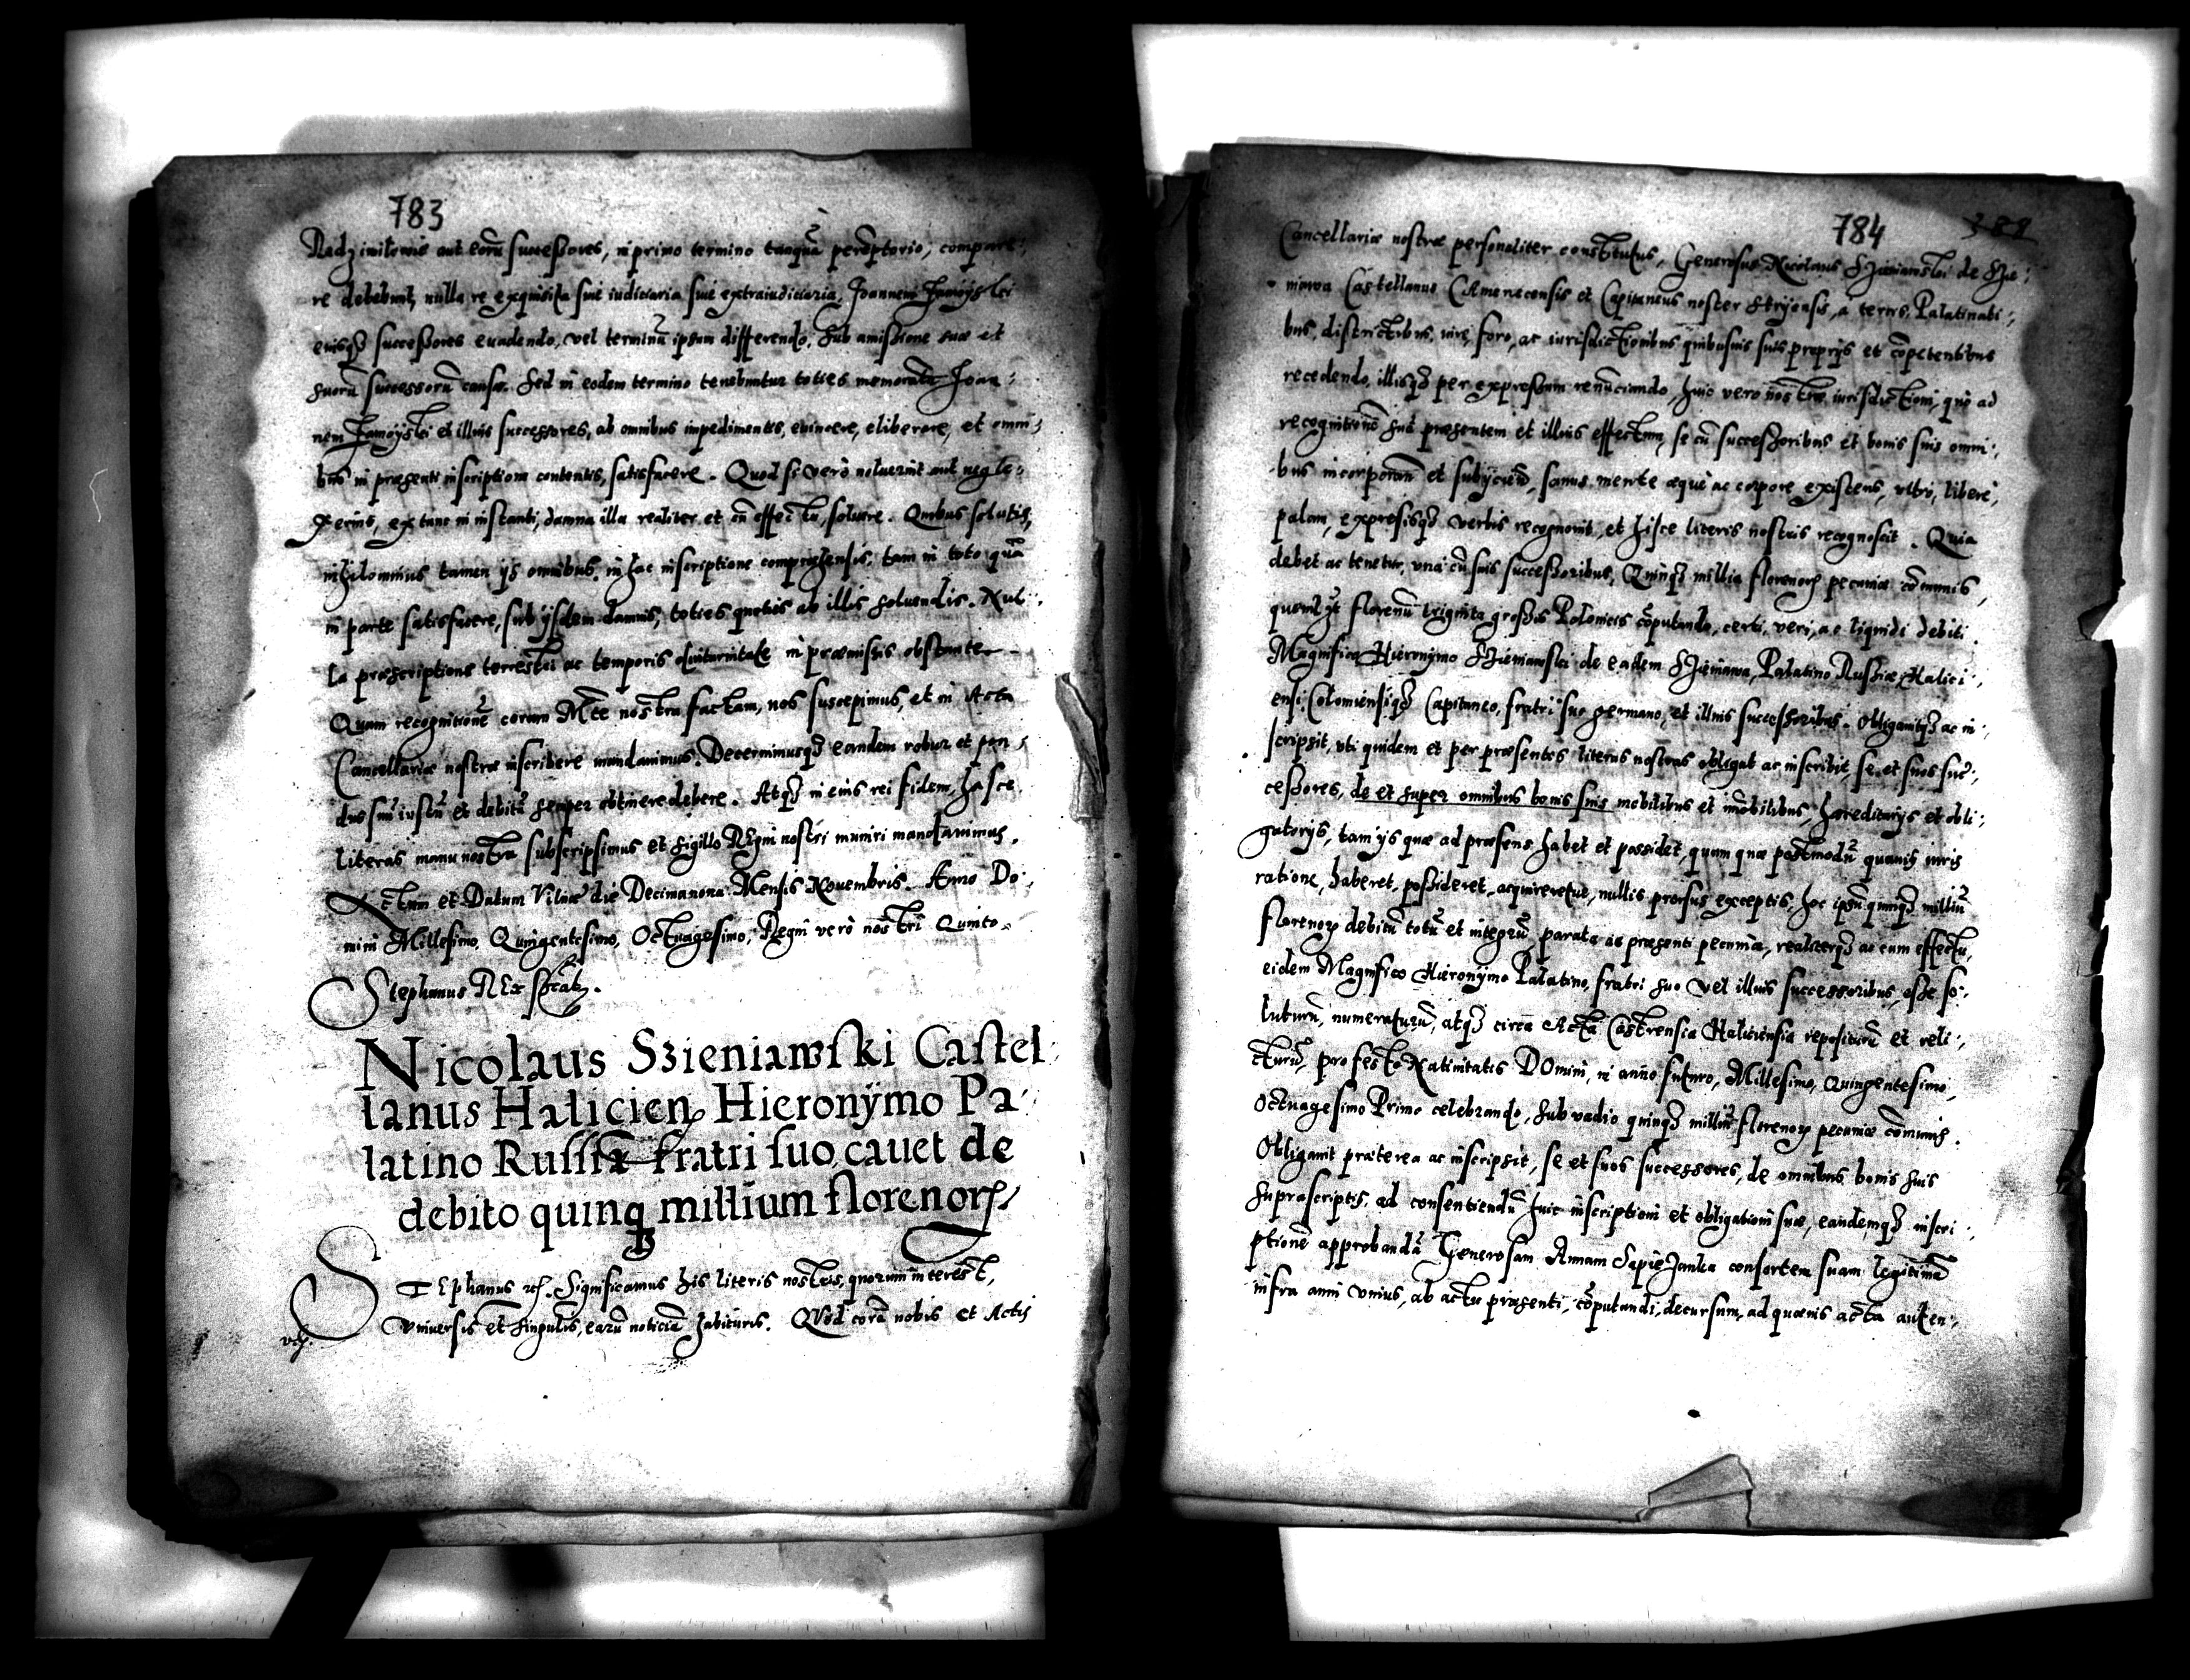 783
Radzimilowie aut eorū successores, in primo termino tanquā perēptorio, compare:
re debebunt, nulla re exquisita siue iudiciaria siue extraiudiciaria, Joannem Zamoyski
eiusqȝ successores euadendo, vel terminū ipsum differendo. Sub amissione suæ et
suorū successorū causæ. Sed in eodem termino tenebuntur toties memoratū Joan:
nem Zamoyski et illius successores, ab omnibus impedimentis, euincere, eliberare, et omni:
bus in præsenti inscriptione contentis, satisfacere. Quod si verò noluerint aut negle:
xerint, ex tunc in instanti, damna illa realiter et cū effectu, soluere. Quibus solutis,
nihilominus tamen ijs omnibus, in hac inscriptione comprehensis, tam in toto quā
in parte satisfacere, sub ijsdem damnis, toties quoties ab illis soluendis. Nul:
la præscriptione terrestri ac temporis diuturnitate in præmissis obstante.
Quam recognitionē coram Mte nostra factam, nos suscepimus, et in Acta
Cancellariæ nostræ inscribere mandauimus. Decernimusqȝ eandem robur et pon:
dus suū iustū et debitū semper obtinere debere. Atqȝ in eius rei fidem, hasce
literas manu nostra subscripsimus et sigillo Regni nostri muniri mandauimus.
Actum et Datum Vilnæ die Decimanona Mensis Nouembris. Anno Do:
mini Millesimo, Quingentesimo, Octuagesimo, Regni verò nostri Quinto.
Stephanus REx
Nicolaus Szieniawski Castel:
lanus Halicien, Hieronÿmo Pa:
latino Russiæ fratri suo, cauet de
debito quinqȝ millium florenorꝝ
STEphanus etc. Significamus his literis nostris, quorum interest,
Vniuersis et singulis, earū noticiā habituris. QVod corā nobis et Actis
784
Cancellariæ nostræ personaliter constitutus, Generosus Nicolaus Szieniawski de Szie:
niawa Castellanus CAmenecensis et Capitaneus noster Stryensis, a terris, Palatinati:
bus, districtibus, iure, foro, ac iurisdictionibus quibusuis suis proprijs et cōpetentibus
recedendo, illisqȝ per expressum renūciando, huic vero nostræ iurisdictioni, quò ad
recognitionē hāc præsentem et illius effectum, se cū successoribus et bonis suis omni:
bus incorporan et subijcien, sanus mente æquè ac corpore existens, vltrò, liberè,
palam, expressisqȝ verbis recognouit, et hisce literis nostris recognoscit. Quia
debet ac tenetur, vnà cū suis successoribus, Quinqȝ millia florenorꝝ pecuniæ cōmunis,
quemlibet florenū triginta grossis Polonicis cōputando, certi, veri, ac liquidi debiti.
Magnifico Hieronÿmo Szieniawski de eadem Szieniawa, Palatino Russiæ, Halici:
ensi, Colomiensiqȝ Capitaneo, fratri suo germano, et illius successoribus. Obligauitqȝ ac in:
scripsit, vti quidem et per præsentes literas nostras obligat ac inscribit se, et suos suc:
cessores, de et super omnibus bonis suis mobilibus et imobilibus, hæreditarijs et obli:
gatorijs, tam ijs quæ ad præsens habet et possidet, quam quæ postmodū quauis iuris
ratione, haberet, possideret, acquireretue, nullis prorsus exceptis, hoc ipsū quinqȝ milliū
florenorꝝ debitū totū et integrū, parata ac præsenti pecunia, realiterqȝ ac cum effectu,
eidem Magnifico Hieronÿmo Palatino, fratri suo vel illius successoribus, esse so:
luturū, numeraturū, atqȝ circa Acta Castrensia Haliciensia repositurū et reli:
cturū, pro festo Natiuitatis DOmini, in anno futuro, Millesimo, Quingentesimo,
Octuagesimo Primo celebrando, sub vadio quinqȝ milliū florenorꝝ pecuniæ cōmunis.
Obligauit præterea ac inscripsit, se et suos successores, de omnibus bonis suis
suprascriptis, ad consentiendū huic inscriptioni et obligationi suæ, eandemqȝ inscri:
ptionē approbandā Generosam Annam Sapiezanka consortem suam legitimā
infra anni vnius, ab actu præsenti, cōputandi, decursum, ad quæuis acta auten: